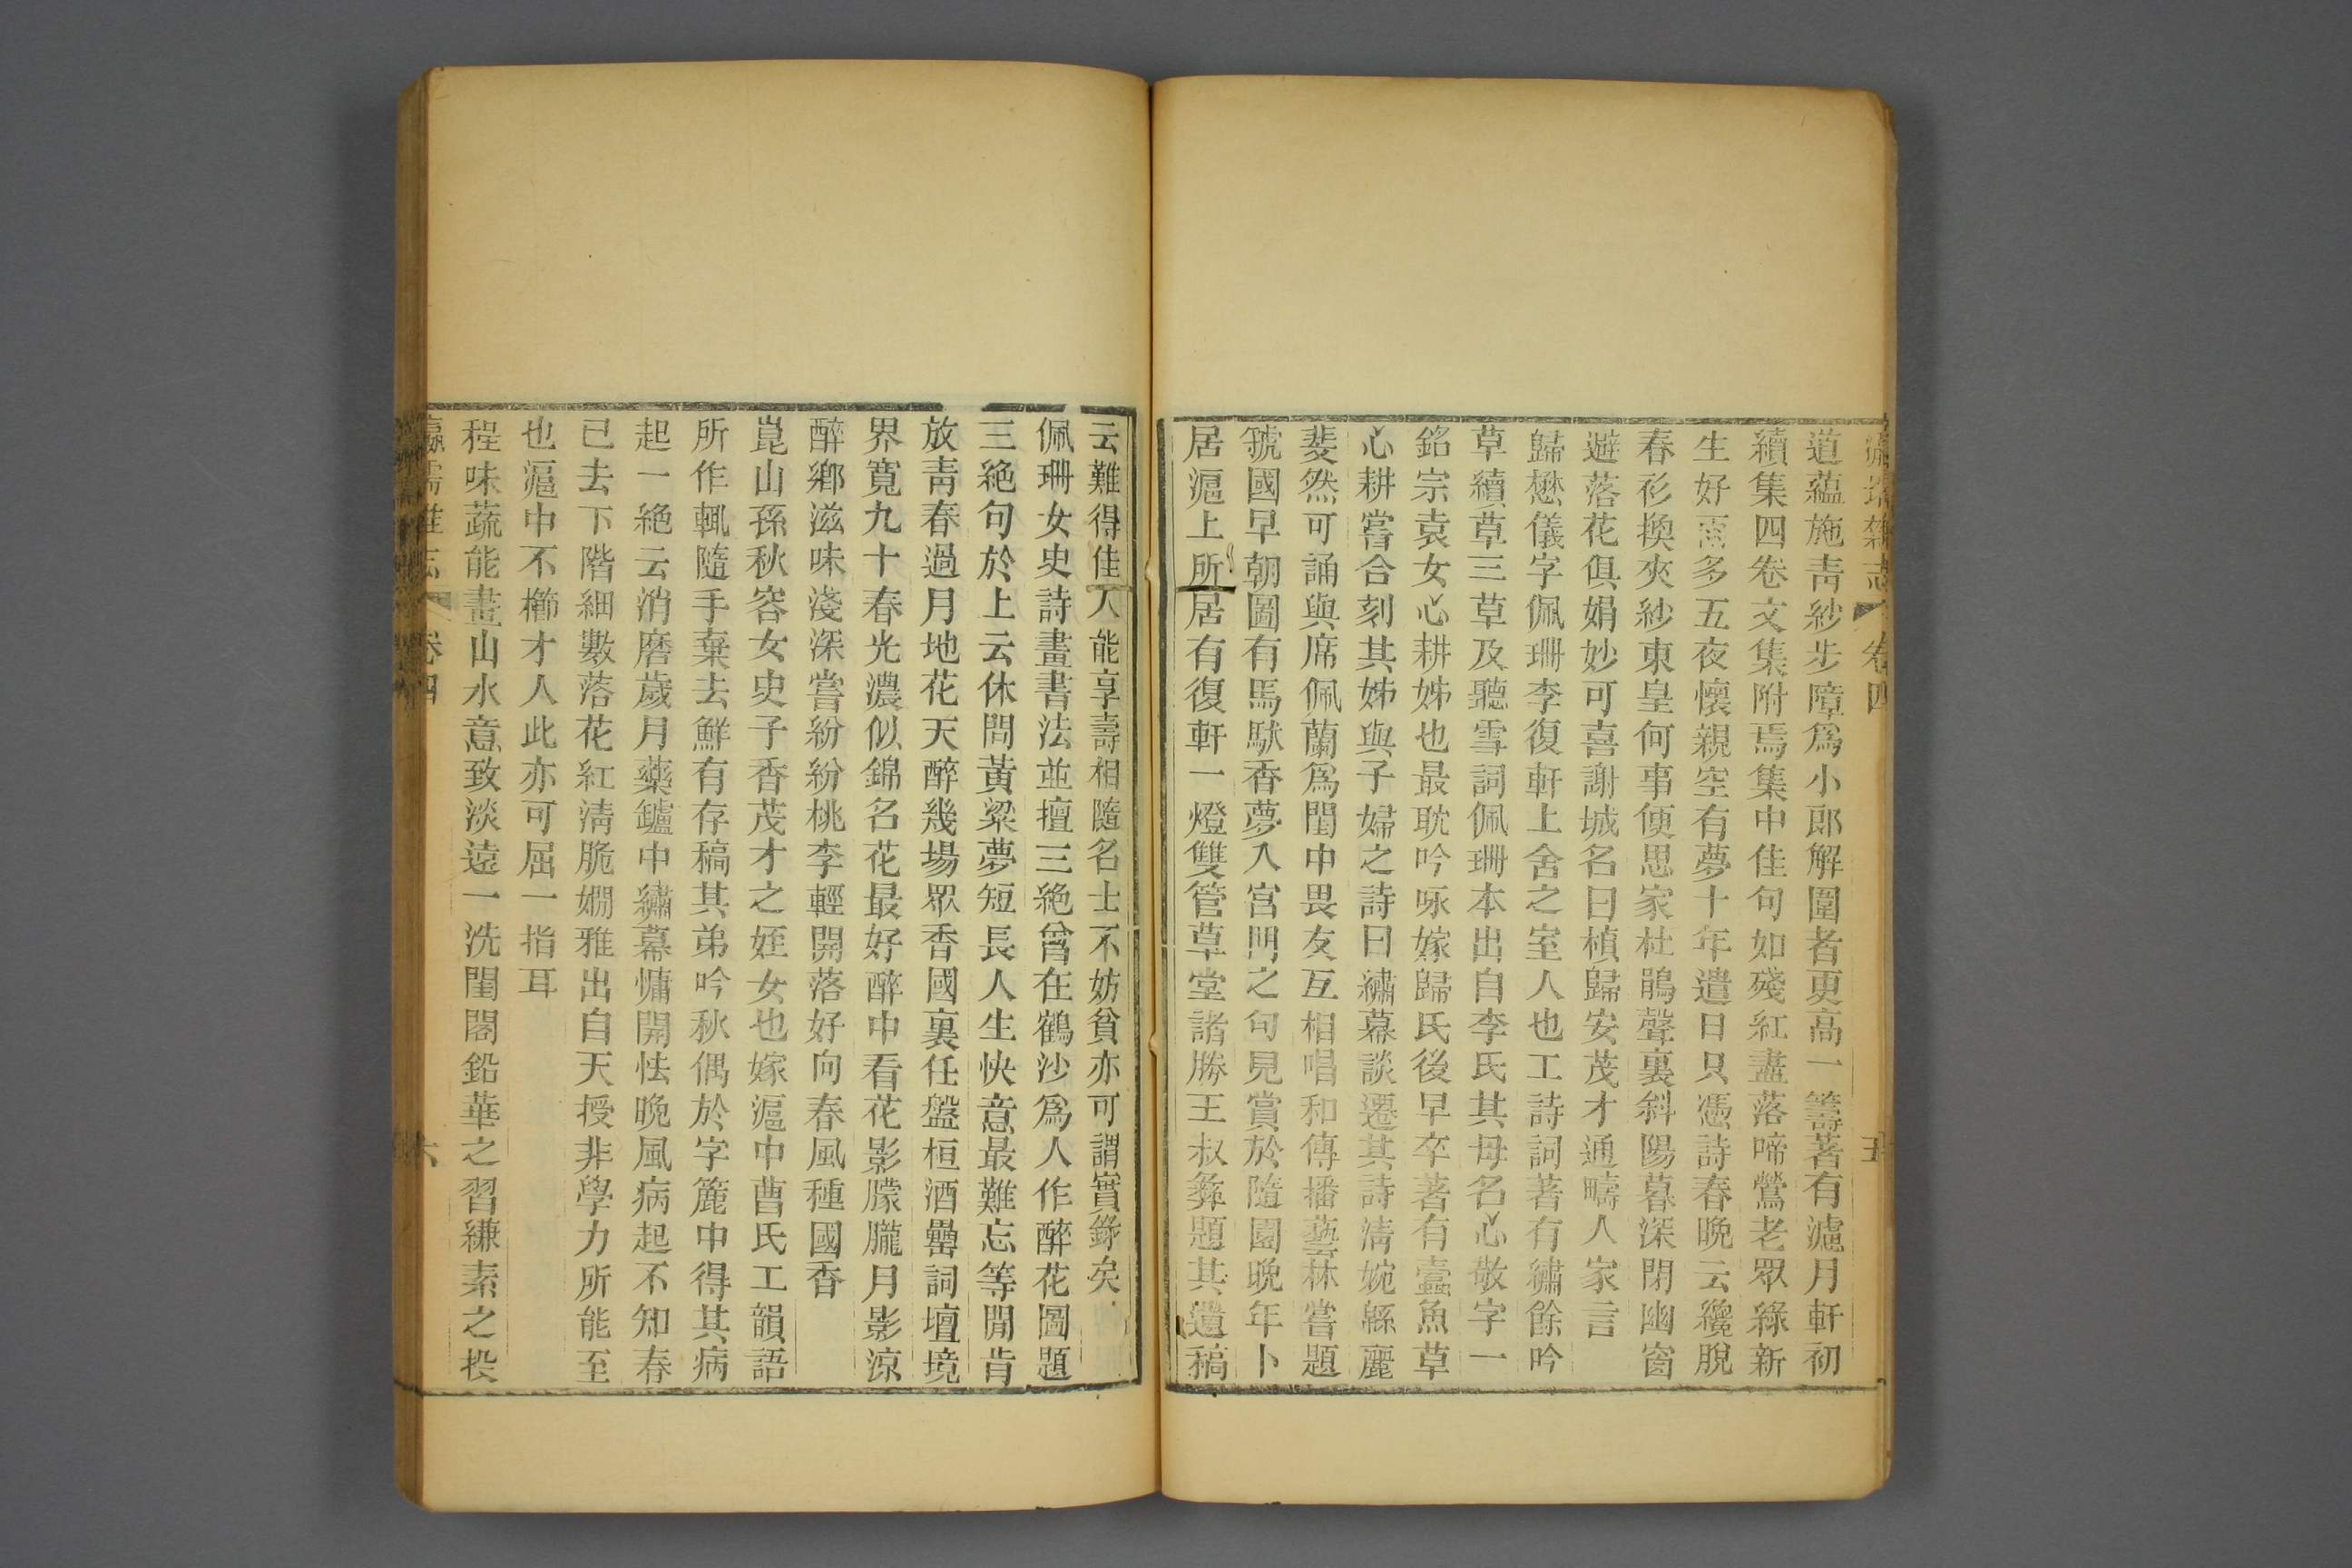 瀛壖雜志 卷四 五
道蘊施靑紗步障爲小郎解圍者更高一籌著有濾月軒初
續集四卷文集附焉集中佳句如殘紅盡落啼鶯老眾綠新
生好雨多五夜懷親空有夢十年遣日只憑詩春晚云纔脫
春衫換夾紗東皇何事便思家杜鵑聲裏斜陽暮深閉幽窗
避落花俱娟妙可喜謝城名曰楨歸安茂才通疇人家言
歸懋儀字佩珊李復軒上舍之室人也工詩詞著有繡餘吟
草續草三草及聽雪詞佩珊本出自李氏其母名心敬字一
銘宗袁女心耕姊也最耽吟咏嫁歸氏後早卒著有蠹魚草
心耕嘗合刻其姊與子婦之詩曰繡幕談遷其詩淸婉緜麗
斐然可誦與席佩蘭爲閨中畏友互相唱和傳播藝林嘗題
虢國早朝圖有馬馱香夢入宮門之句見賞於隨園晚年卜
居滬上所居有復軒一燈雙管草堂諸勝王叔彝題其遺稿
云難得佳人能享壽相隨名士不妨貧亦可謂實錄矣
佩珊女史詩畫書法並擅三絕曾在鶴沙爲人作醉花圖題
三絕句於上云休問黃粱夢短長人生快意最難忘等閒肯
放靑春過月地花天醉幾場眾香國裏任盤桓酒罍詞壇境
界寬九十春光濃似錦名花最好醉中看花影朦朧月影涼
醉鄉滋味淺深嘗紛紛桃李輕開落好向春風種國香
崑山孫秋容女史子香茂才之姪女也嫁滬中曹氏工韻語
所作輒隨手棄去鮮有存稿其弟吟秋偶於字簏中得其病
起一絕云消磨歲月藥鑪中繡幕慵開怯晩風病起不知春
已去下階細數落花紅淸脆嫺雅出自天授非學力所能至
也滬中不櫛才人此亦可屈一指耳
程味蔬能畫山水意致淡遠一洗閨閣鉛華之習縑素之投
瀛壖雜志 卷四 六